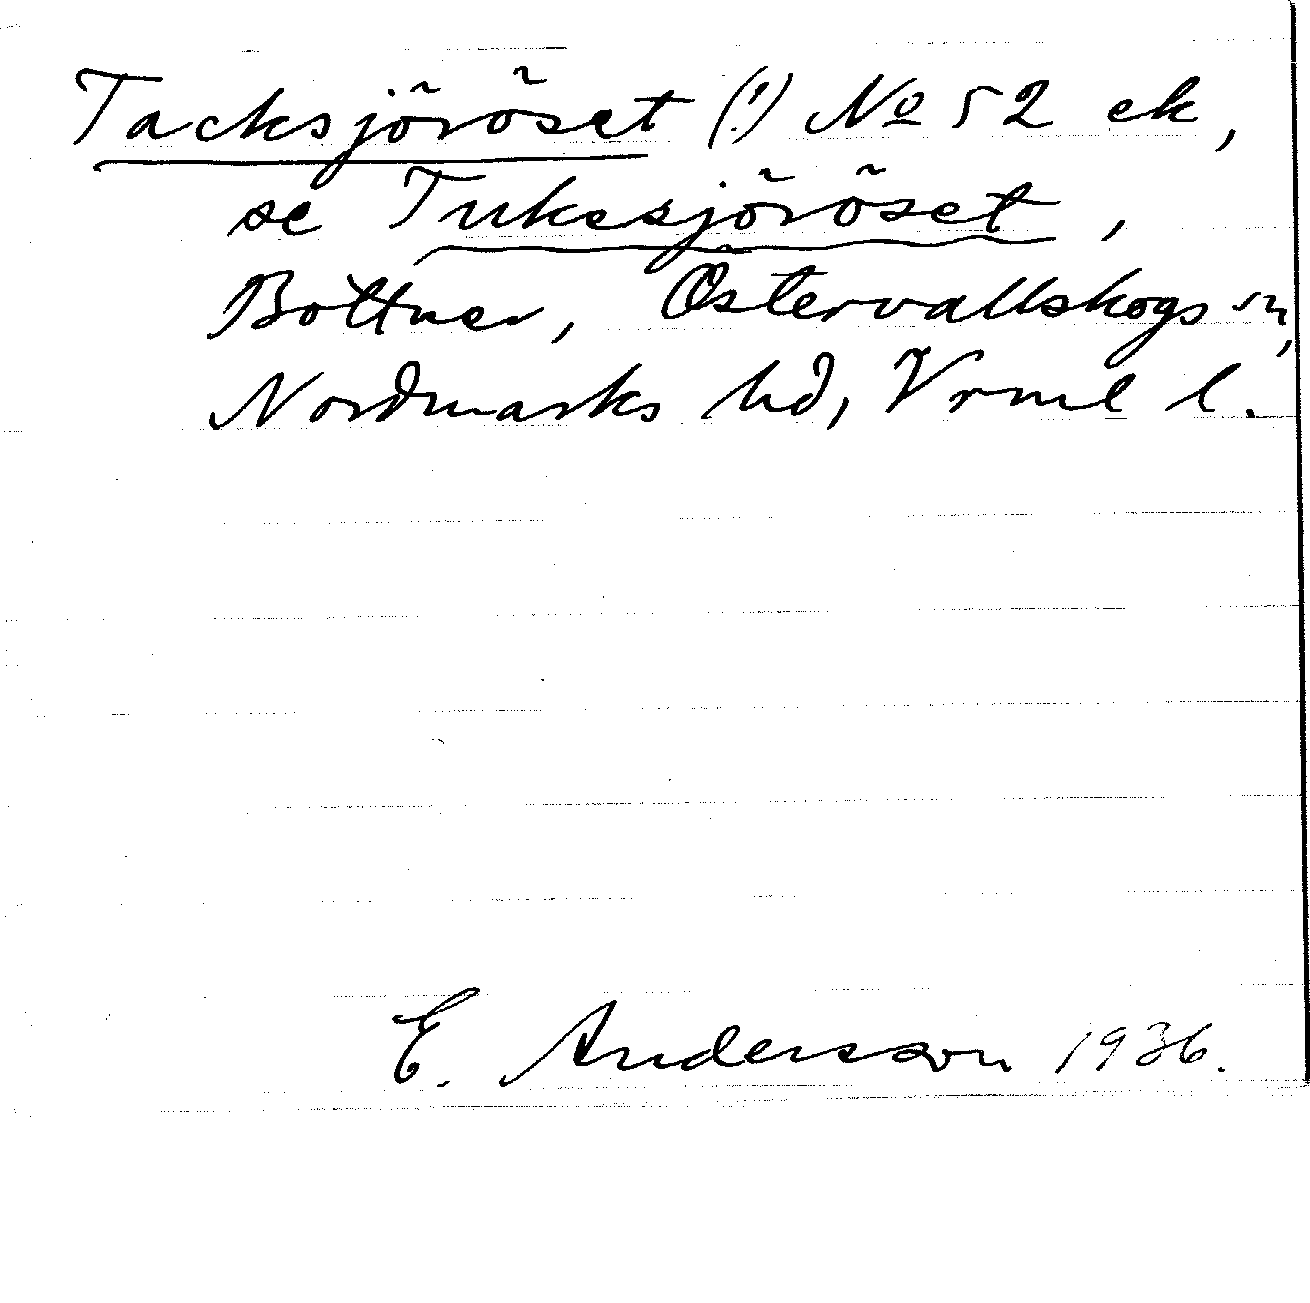 Tacksjöröset (!) No 52 ek,
se Tukesjöröset,
Bottnen, Östervallskogs sn,
Nordmarks hd, Vrml l.
E. Andersson 1936.